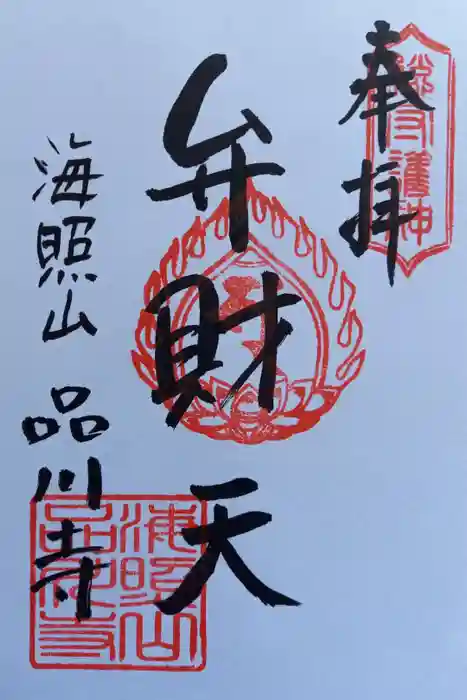 奉拝
弁財天
海照山 品川寺
海照山
品川寺